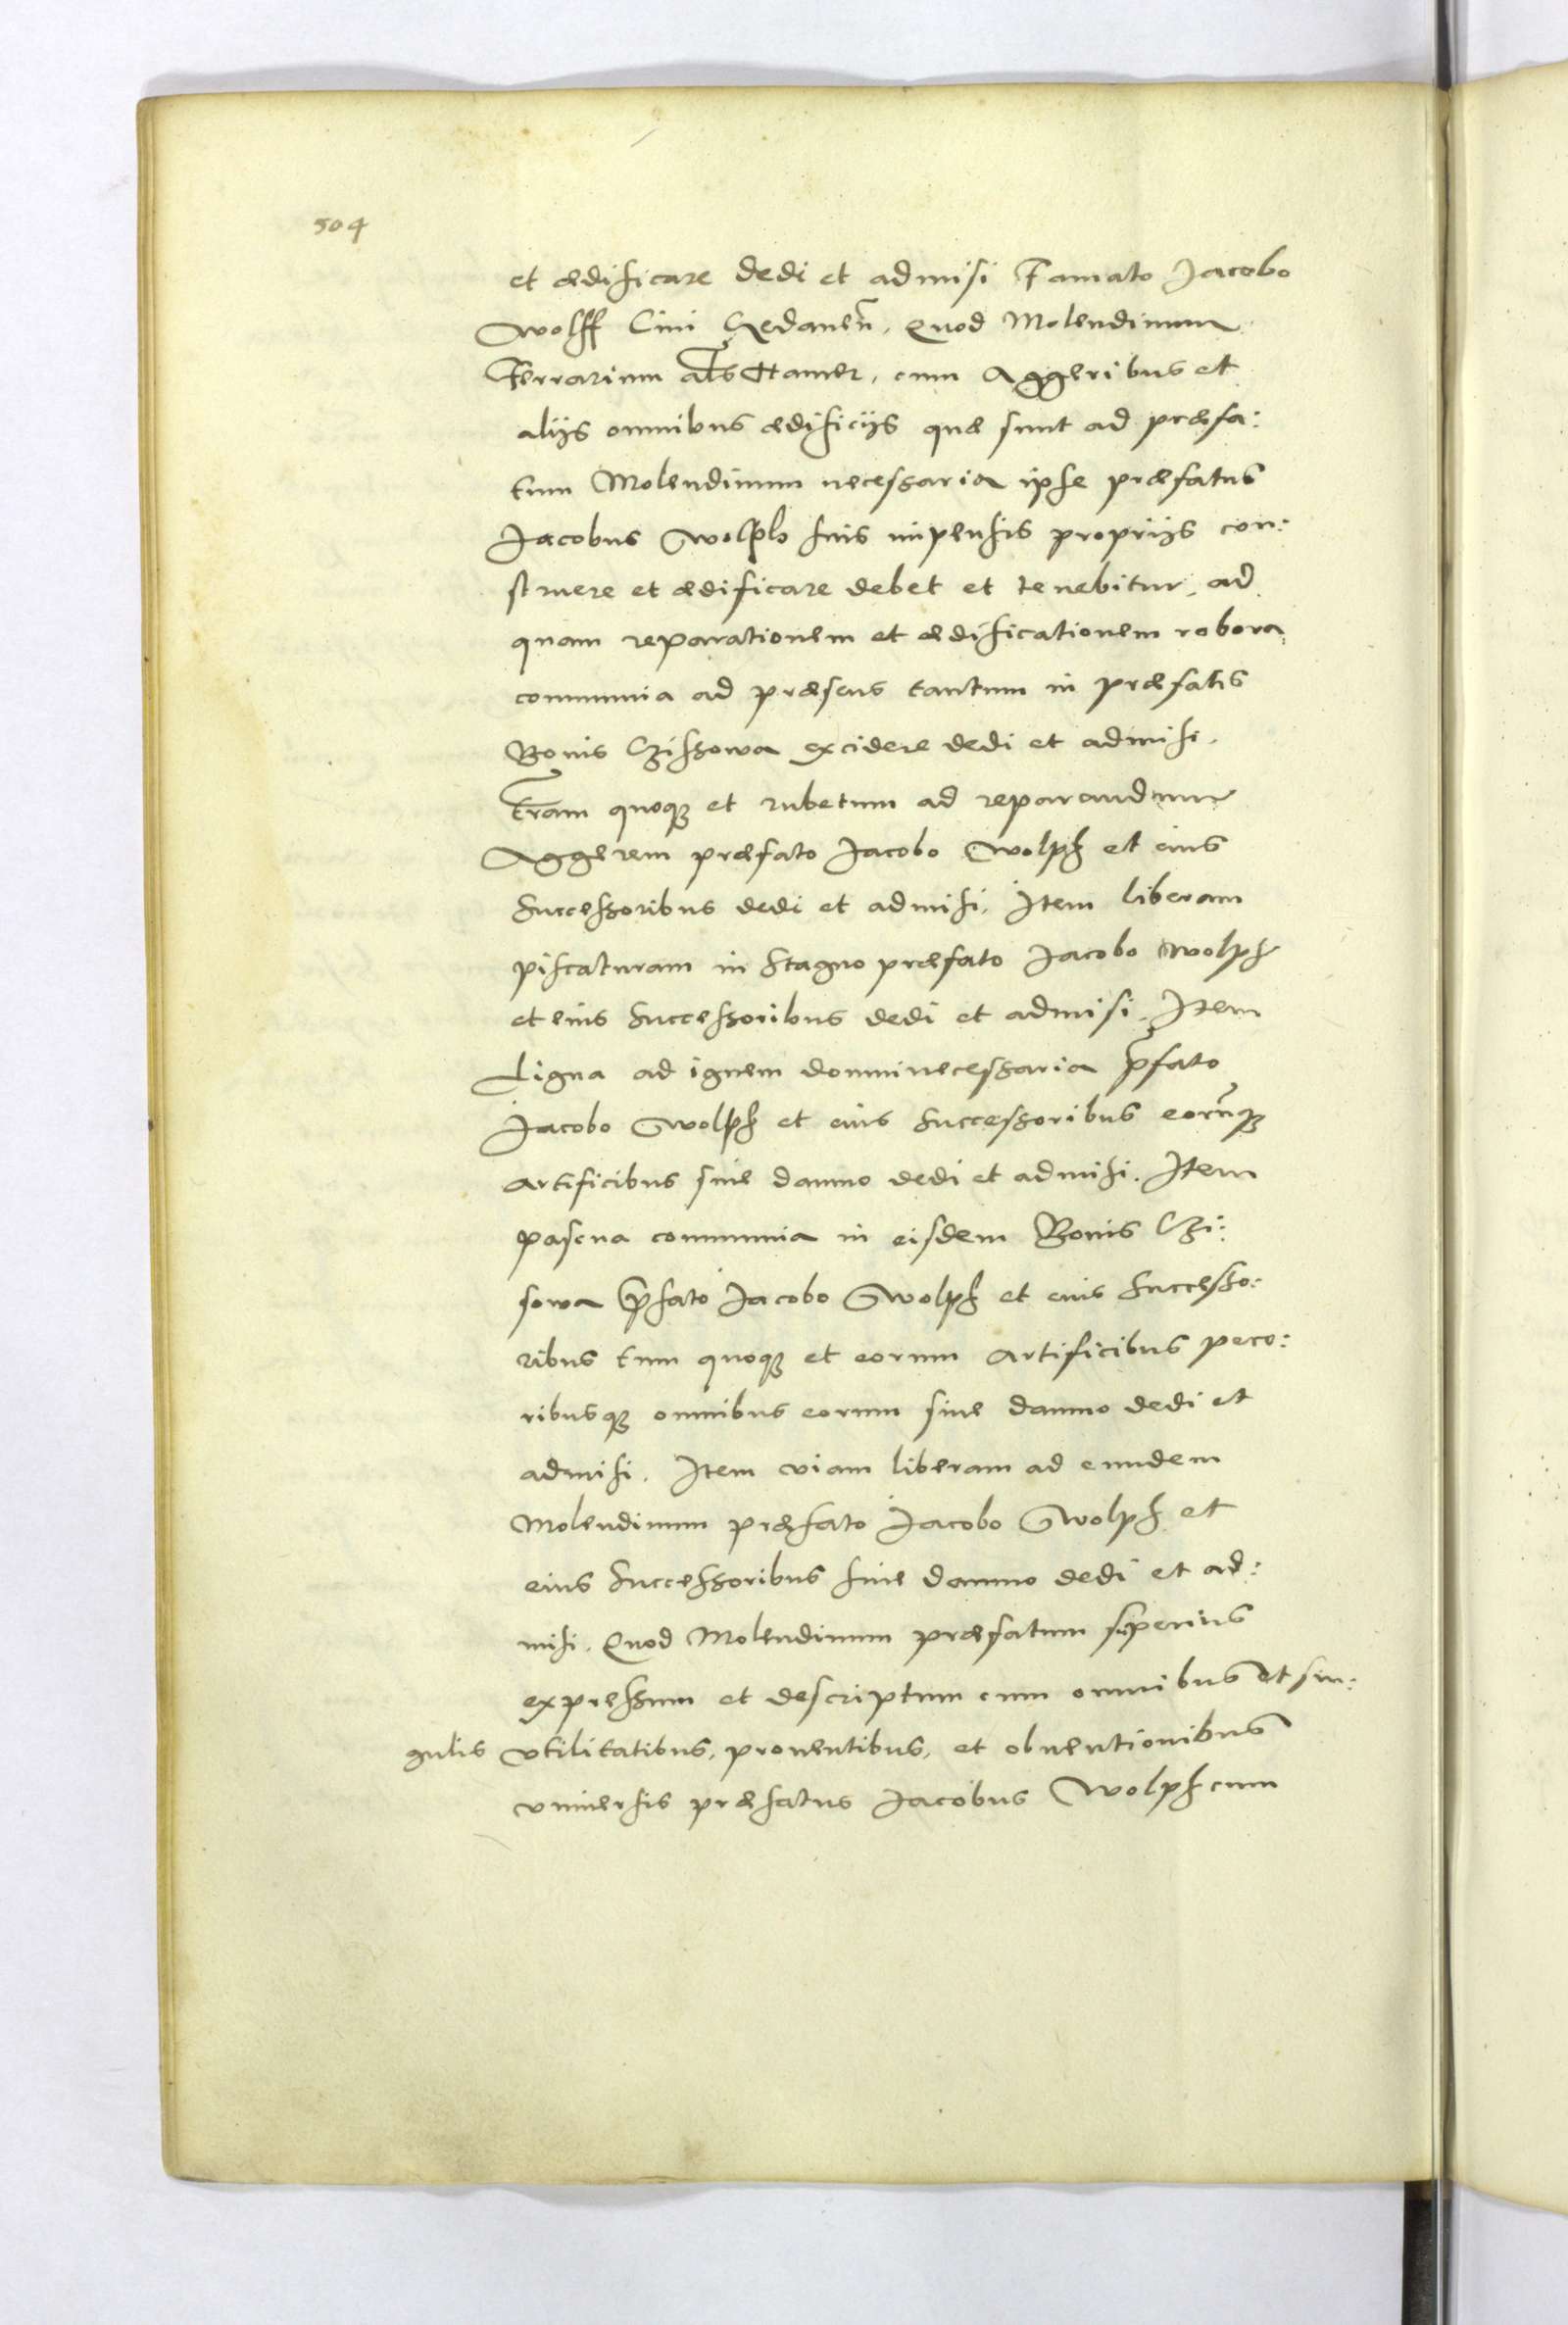 504
et ædificare dedi et admisi Famato Jacobo
Wolff Civi Gedanen̄. Quod Molendinum
Ferrarium als Hamer, cum Aggeribus et
alijs omnibus ædificijs quæ sunt ad præfa:
tum Molendinum necessaria ipse præfatus
Jacobus Wolph suis impensis proprijs con:
struere et ædificare debet et tenebitur, ad
quam reparationem et ædificationem robora
communia ad præsens tantum in præfatis
Bonis Czissowa excidere dedi et admisi.
Tram quoqȝ et rubetum ad reparandum
Aggerem præfato Jacobo Wolph et eius
Successoribus dedi et admisi. Item liberam
piscaturam in Stagno præfato Jacobo Wolph
et eius Successoribus dedi et admisi. Item
Ligna ad ignem domui necessaria p̄fato
Jacobo Wolph et eius Successoribus eorūqȝ
artificibus sine damno dedi et admisi. Item
pascua communia in eisdem Bonis Czi:
sowa p̄fato Jacobo Wolph et eius Successo:
ribus tum quoqȝ et eorum artificibus peco:
ribusqȝ omnibus eorum sine damno dedi et
admisi. Item viam liberam ad eundem
Molendinum præfato Jacobo Wolph et
eius Successoribus sine damno dedi et ad:
misi. Quod Molendinum præfatum superius
expressum et descriptum cum omnibus et sin:
gulis vtilitatibus, proventibus, et obventionibus
vniversis præfatus Jacobus Wolph cum